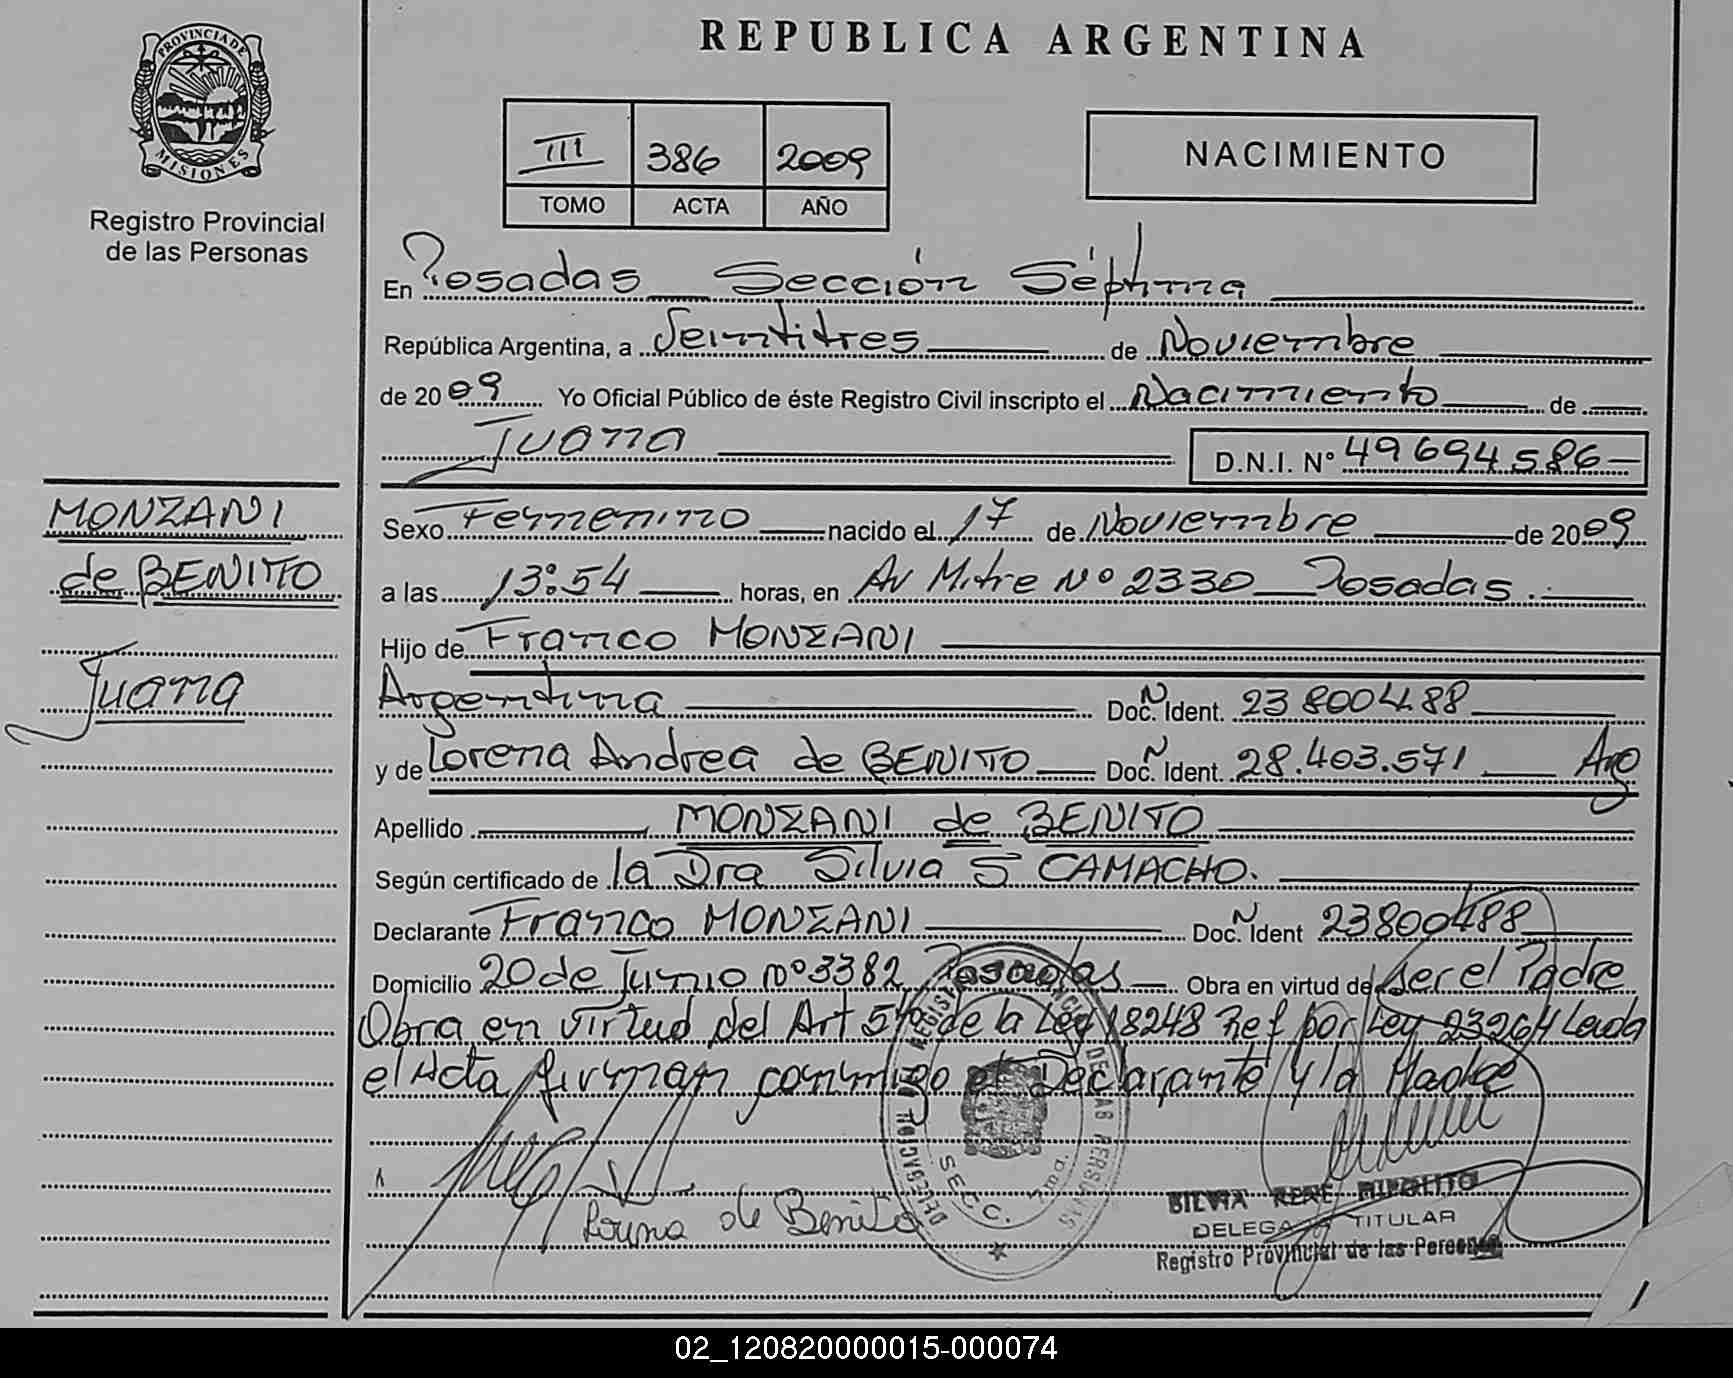 PROVINCIA DE
MISIONES
Registro Provincial
de las Personas
REPUBLICA ARGENTINA
III 386 2009
TOMO ACTA AÑO
NACIMIENTO
En Posadas Sección Séptima
República Argentina, a Veintitres de Noviembre
de 2009 Yo Oficial Público de éste Registro Civil inscripto el Nacimiento de
Juana D.N.I. N° 49694586
MONZANI
de BENITO
Juana
Sexo Femenino nacido el 17 de Noviembre de 2009
a las 13:54 horas, en Av Mitre N° 2330 Posadas.
Hijo de Franco MONZANI
Argentina N Doc. Ident. 23800488
y de Lorena Andrea de BENITO N Doc. Ident. 28.403.571 Arg
Apellido MONZANI de BENITO
Según certificado de la Dra Silvia S CAMACHO.
Declarante Franco MONZANI N Doc. Ident 23800488
Domicilio 20 de Junio N° 3382 Posadas Obra en virtud de ser el Padre
Obra en virtud del Art 5to de la Ley 18248 Ref por Ley 23264 Leida
el Acta firman conmigo el Declarante y la Madre
Lorena de Benito
SECC. 7ma.
SILVIA RENE HIPOLITO
DELEGADA TITULAR
Registro Provincial de las Personas
02_120820000015-000074